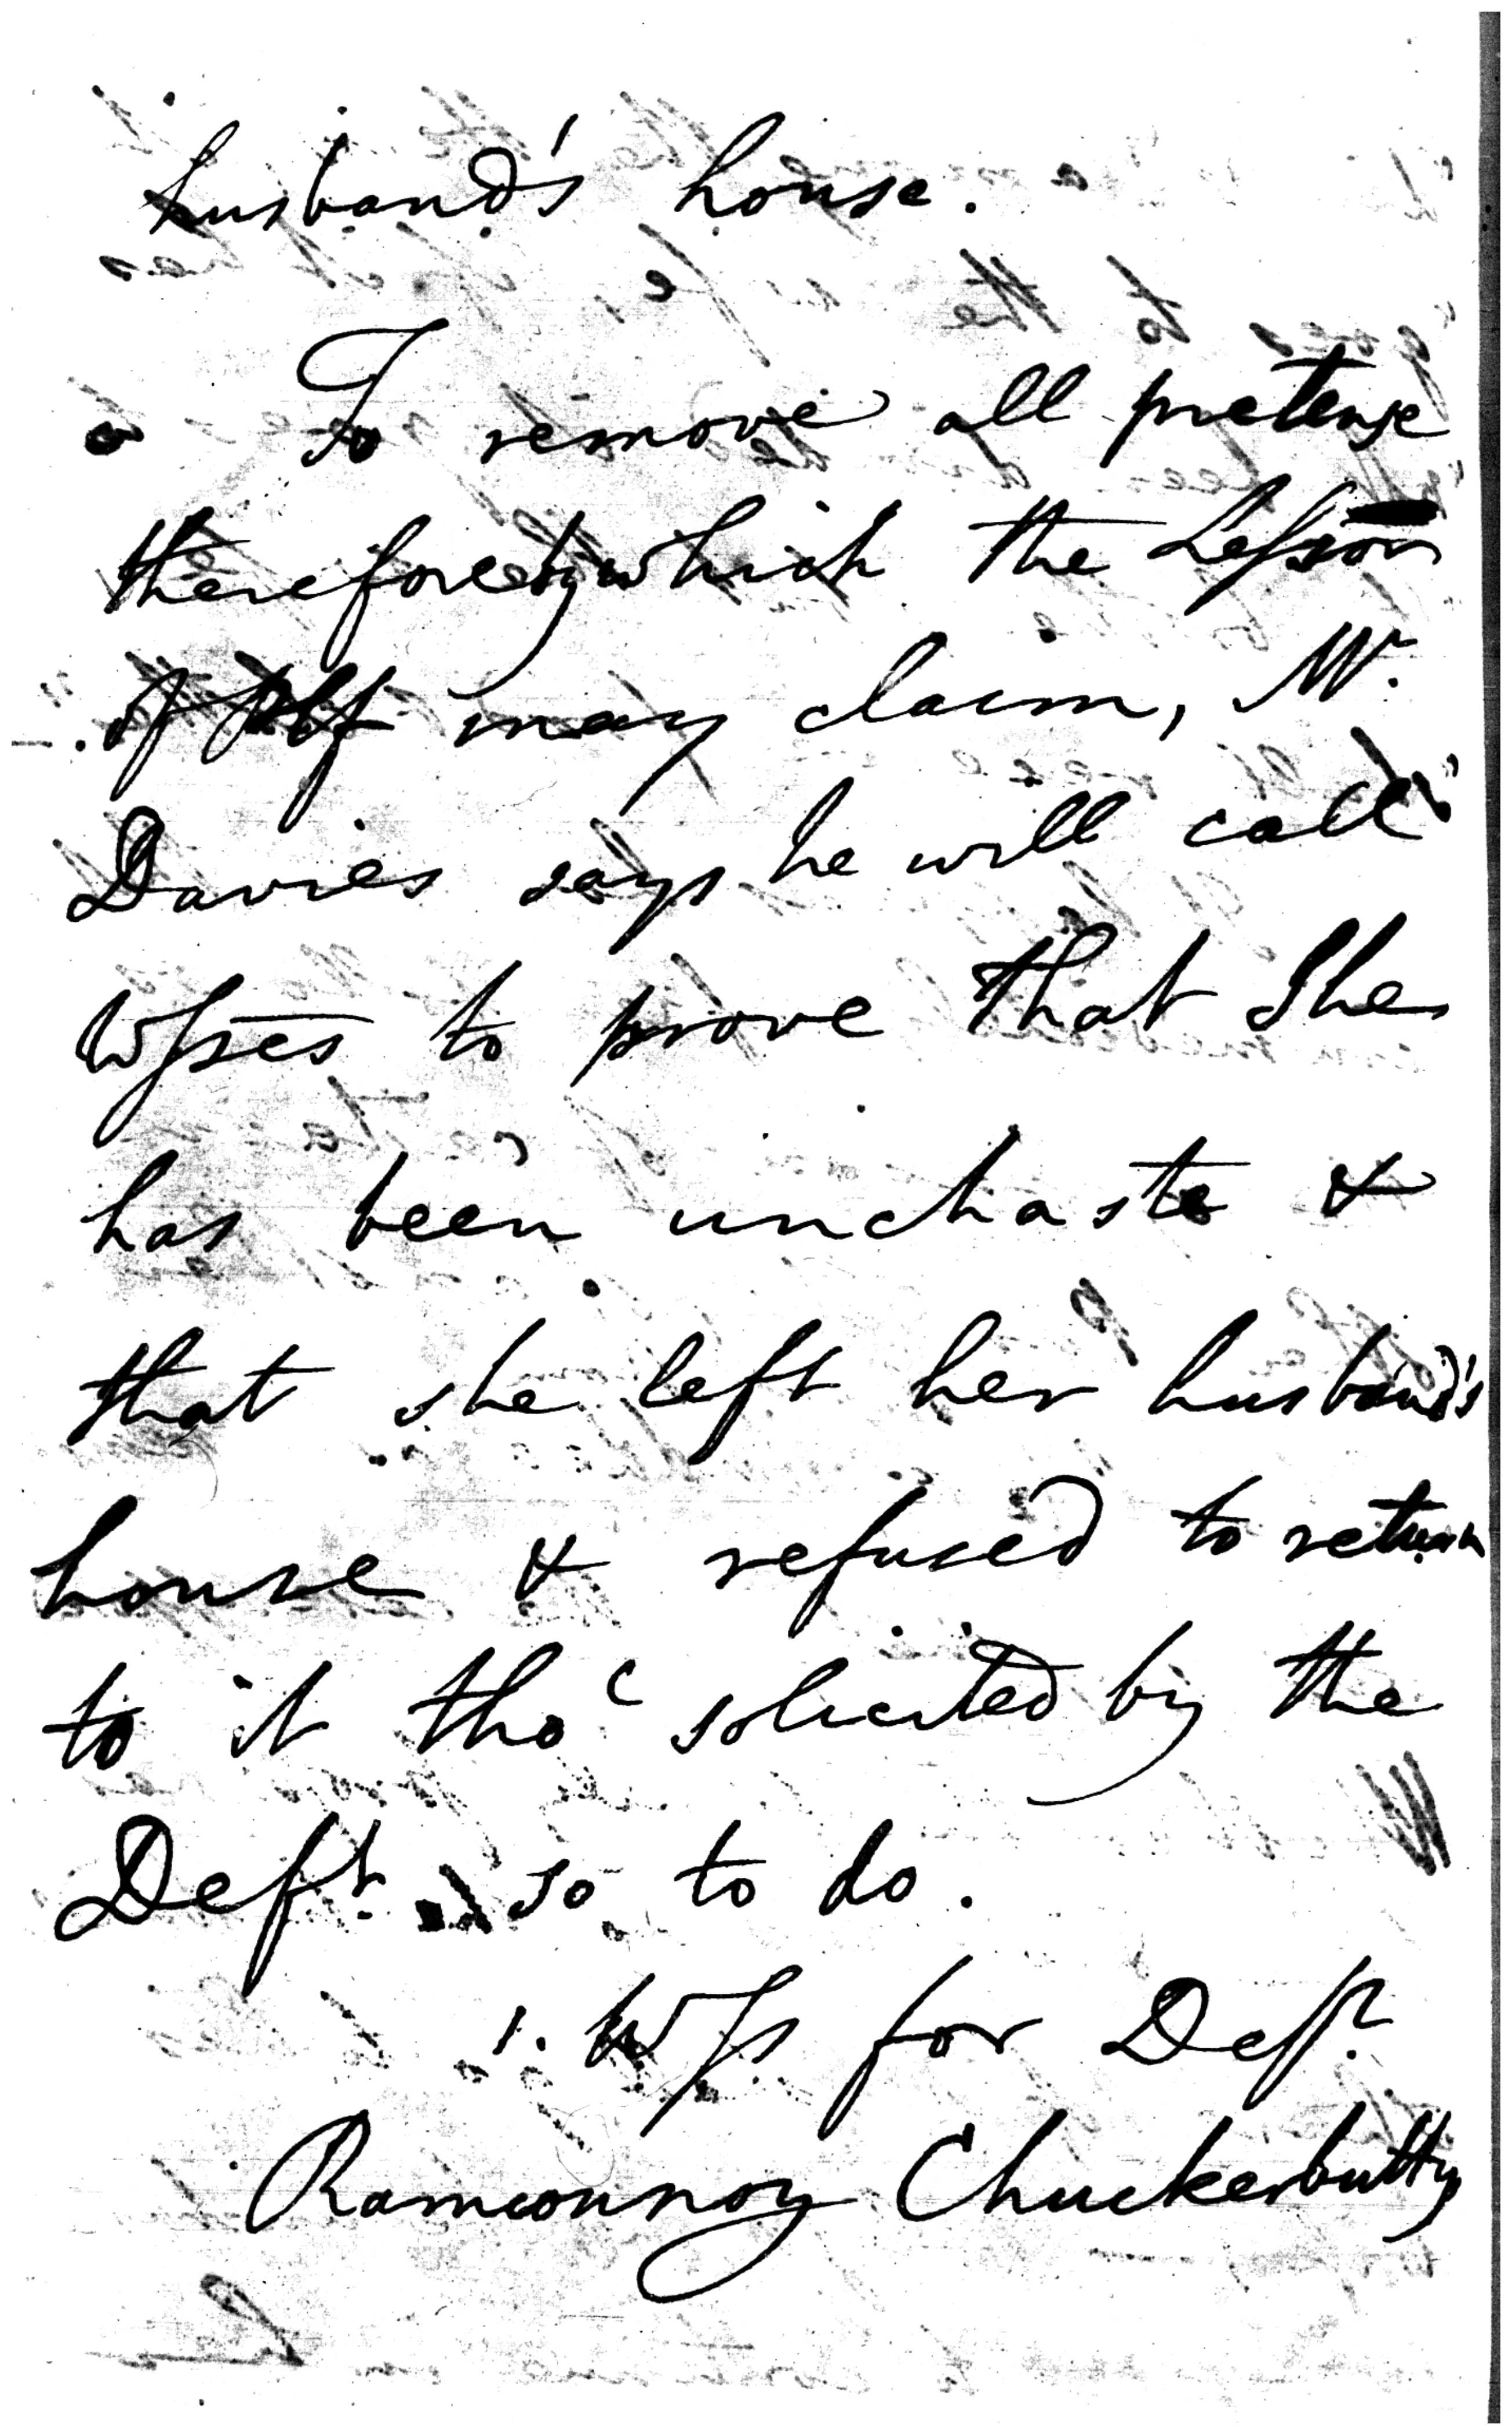 husband's house.
To remove all pretense
therefore by which the Lessor
of Plf may claim, Mr.
Davies says he will call
Wsses to prove that She
has been unchaste &
that she left her husband's
house & refused to return
to it tho' solicited by the
Deft. so to do.
1. Wss for Deft.
Chuckerbutty